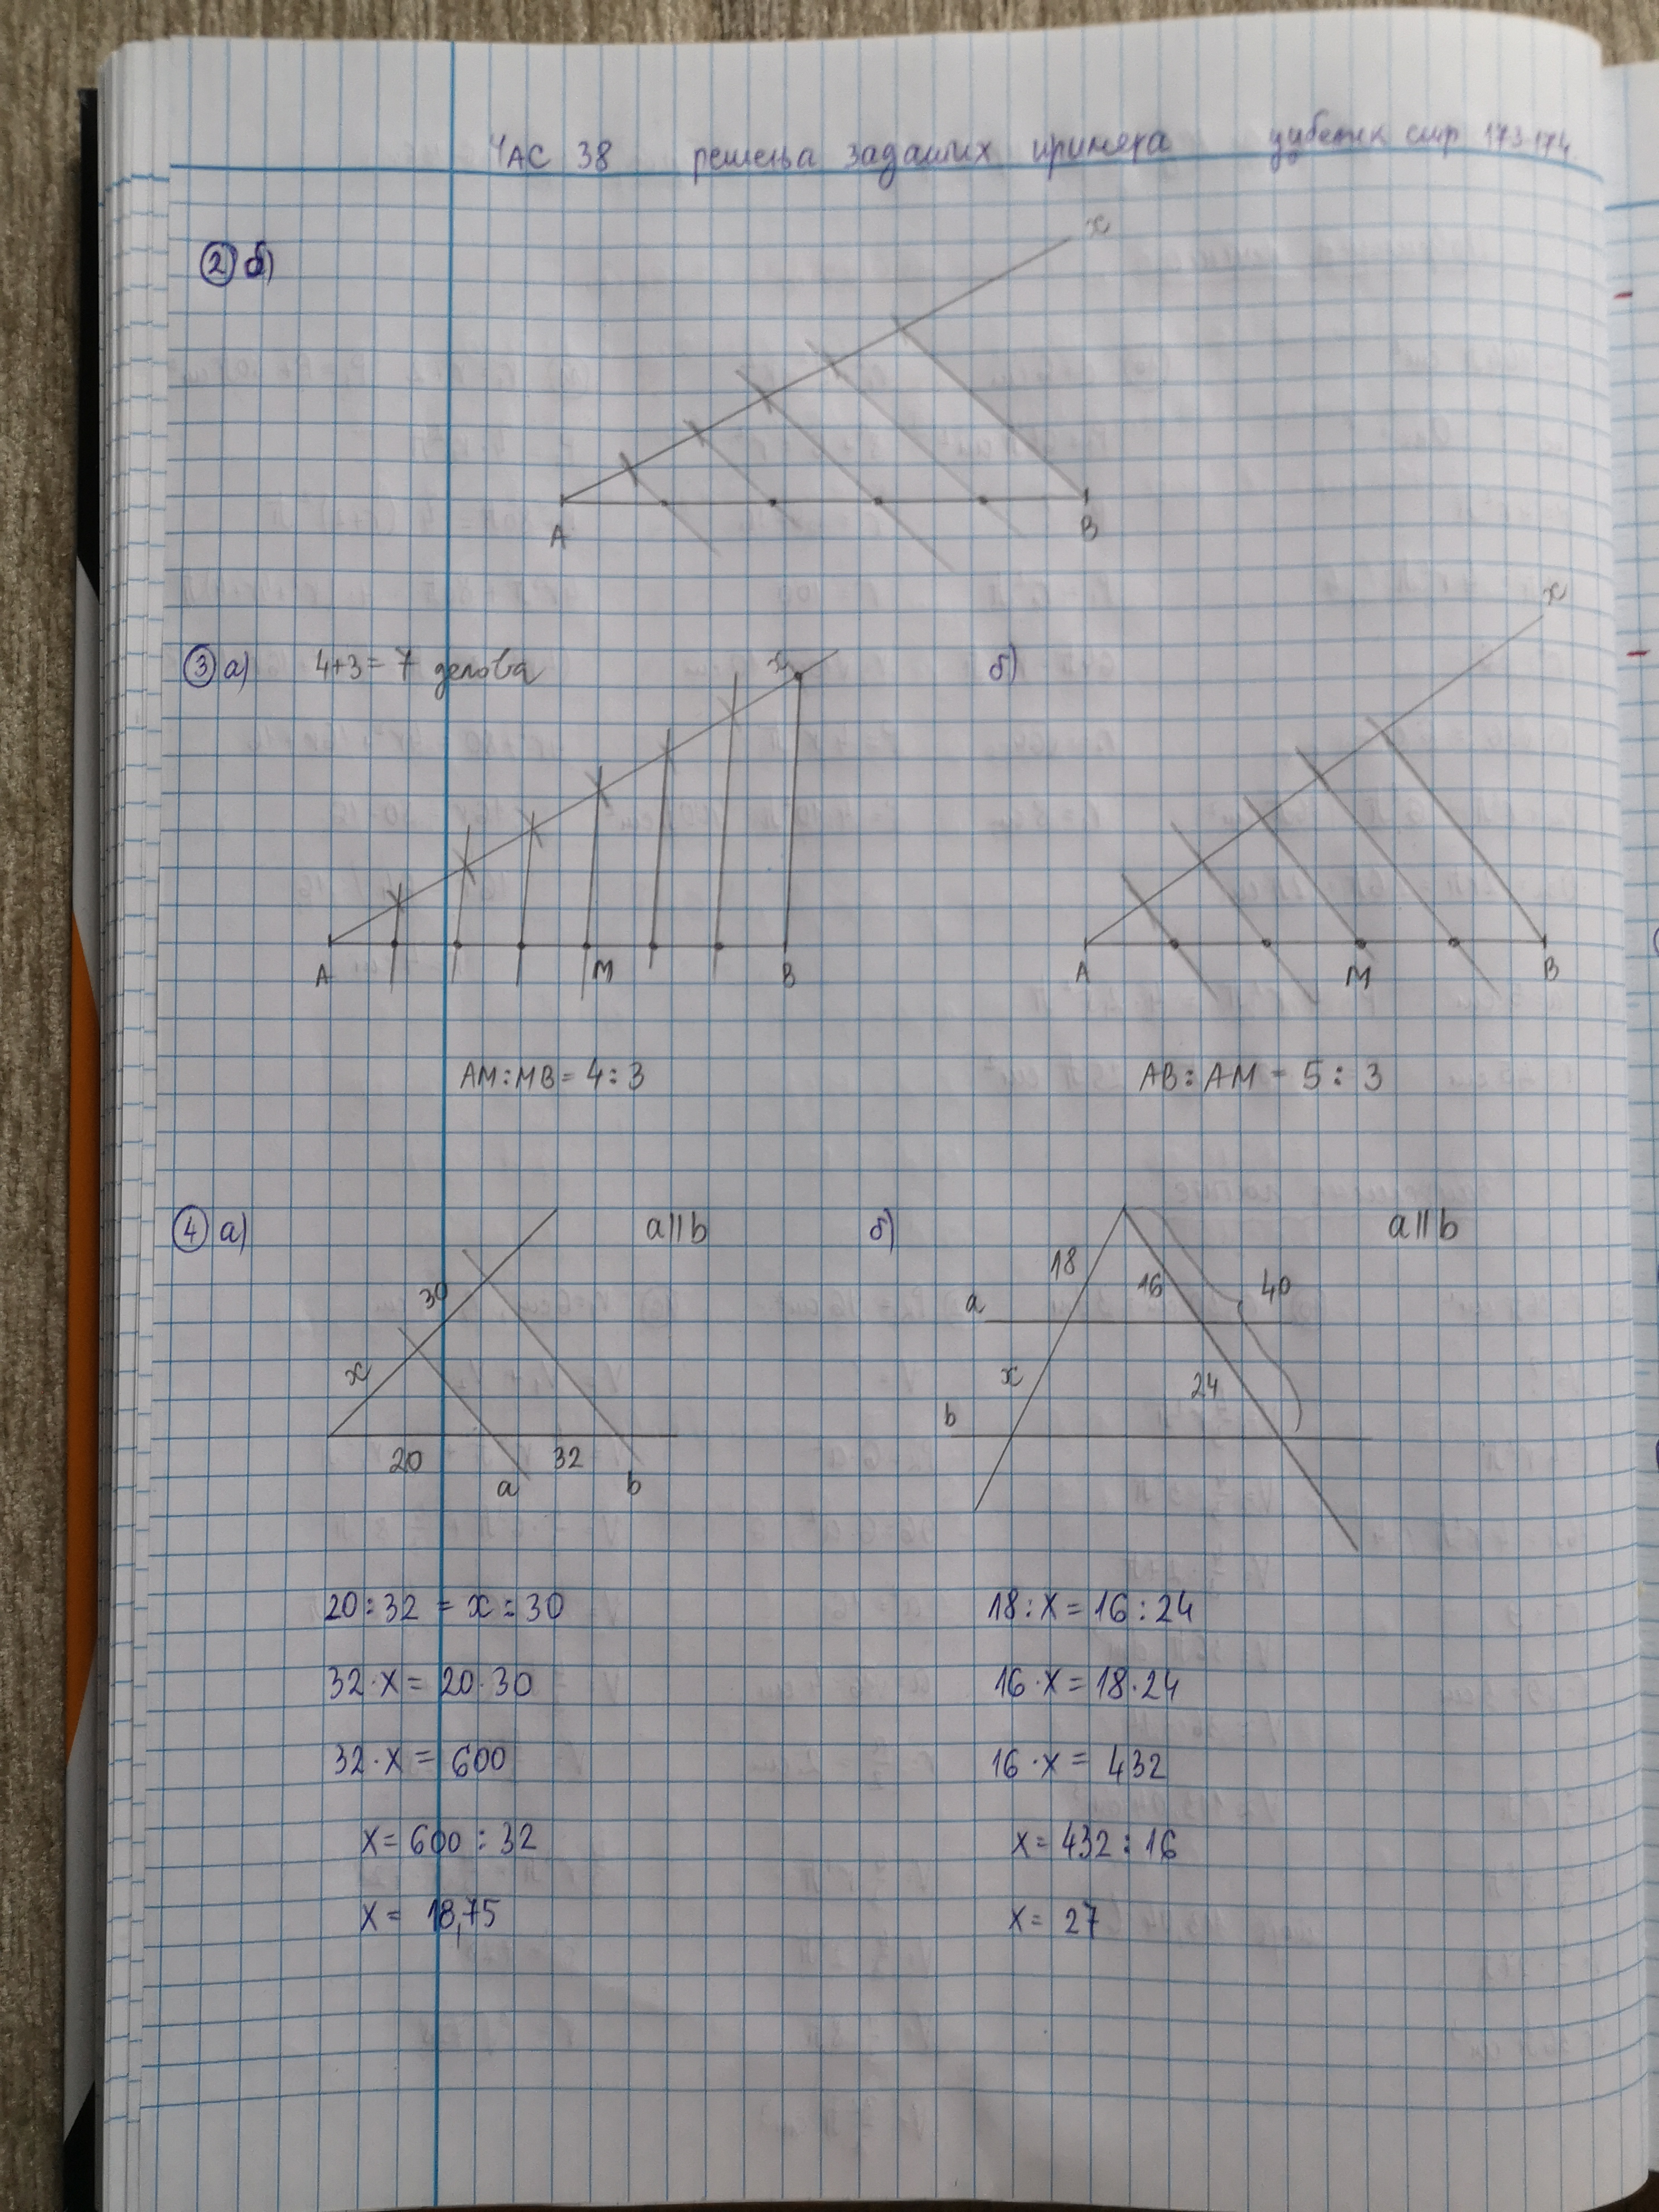 ЧАС 38 решења задатих примера уџбеник стр 173-174.
② б)
x
A B
③ а) 4+3=7 делова
x
A M B
AM:MB=4:3
б)
x
A M B
AB:AM=5:3
④ а) a||b
30
x
20 32
a b
20:32=x:30
32·x=20·30
32·x=600
x=600:32
x=18,75
б) a||b
18 16 40
a
x 24
b
18:x=16:24
16·x=18·24
16·x=432
x=432:16
x=27